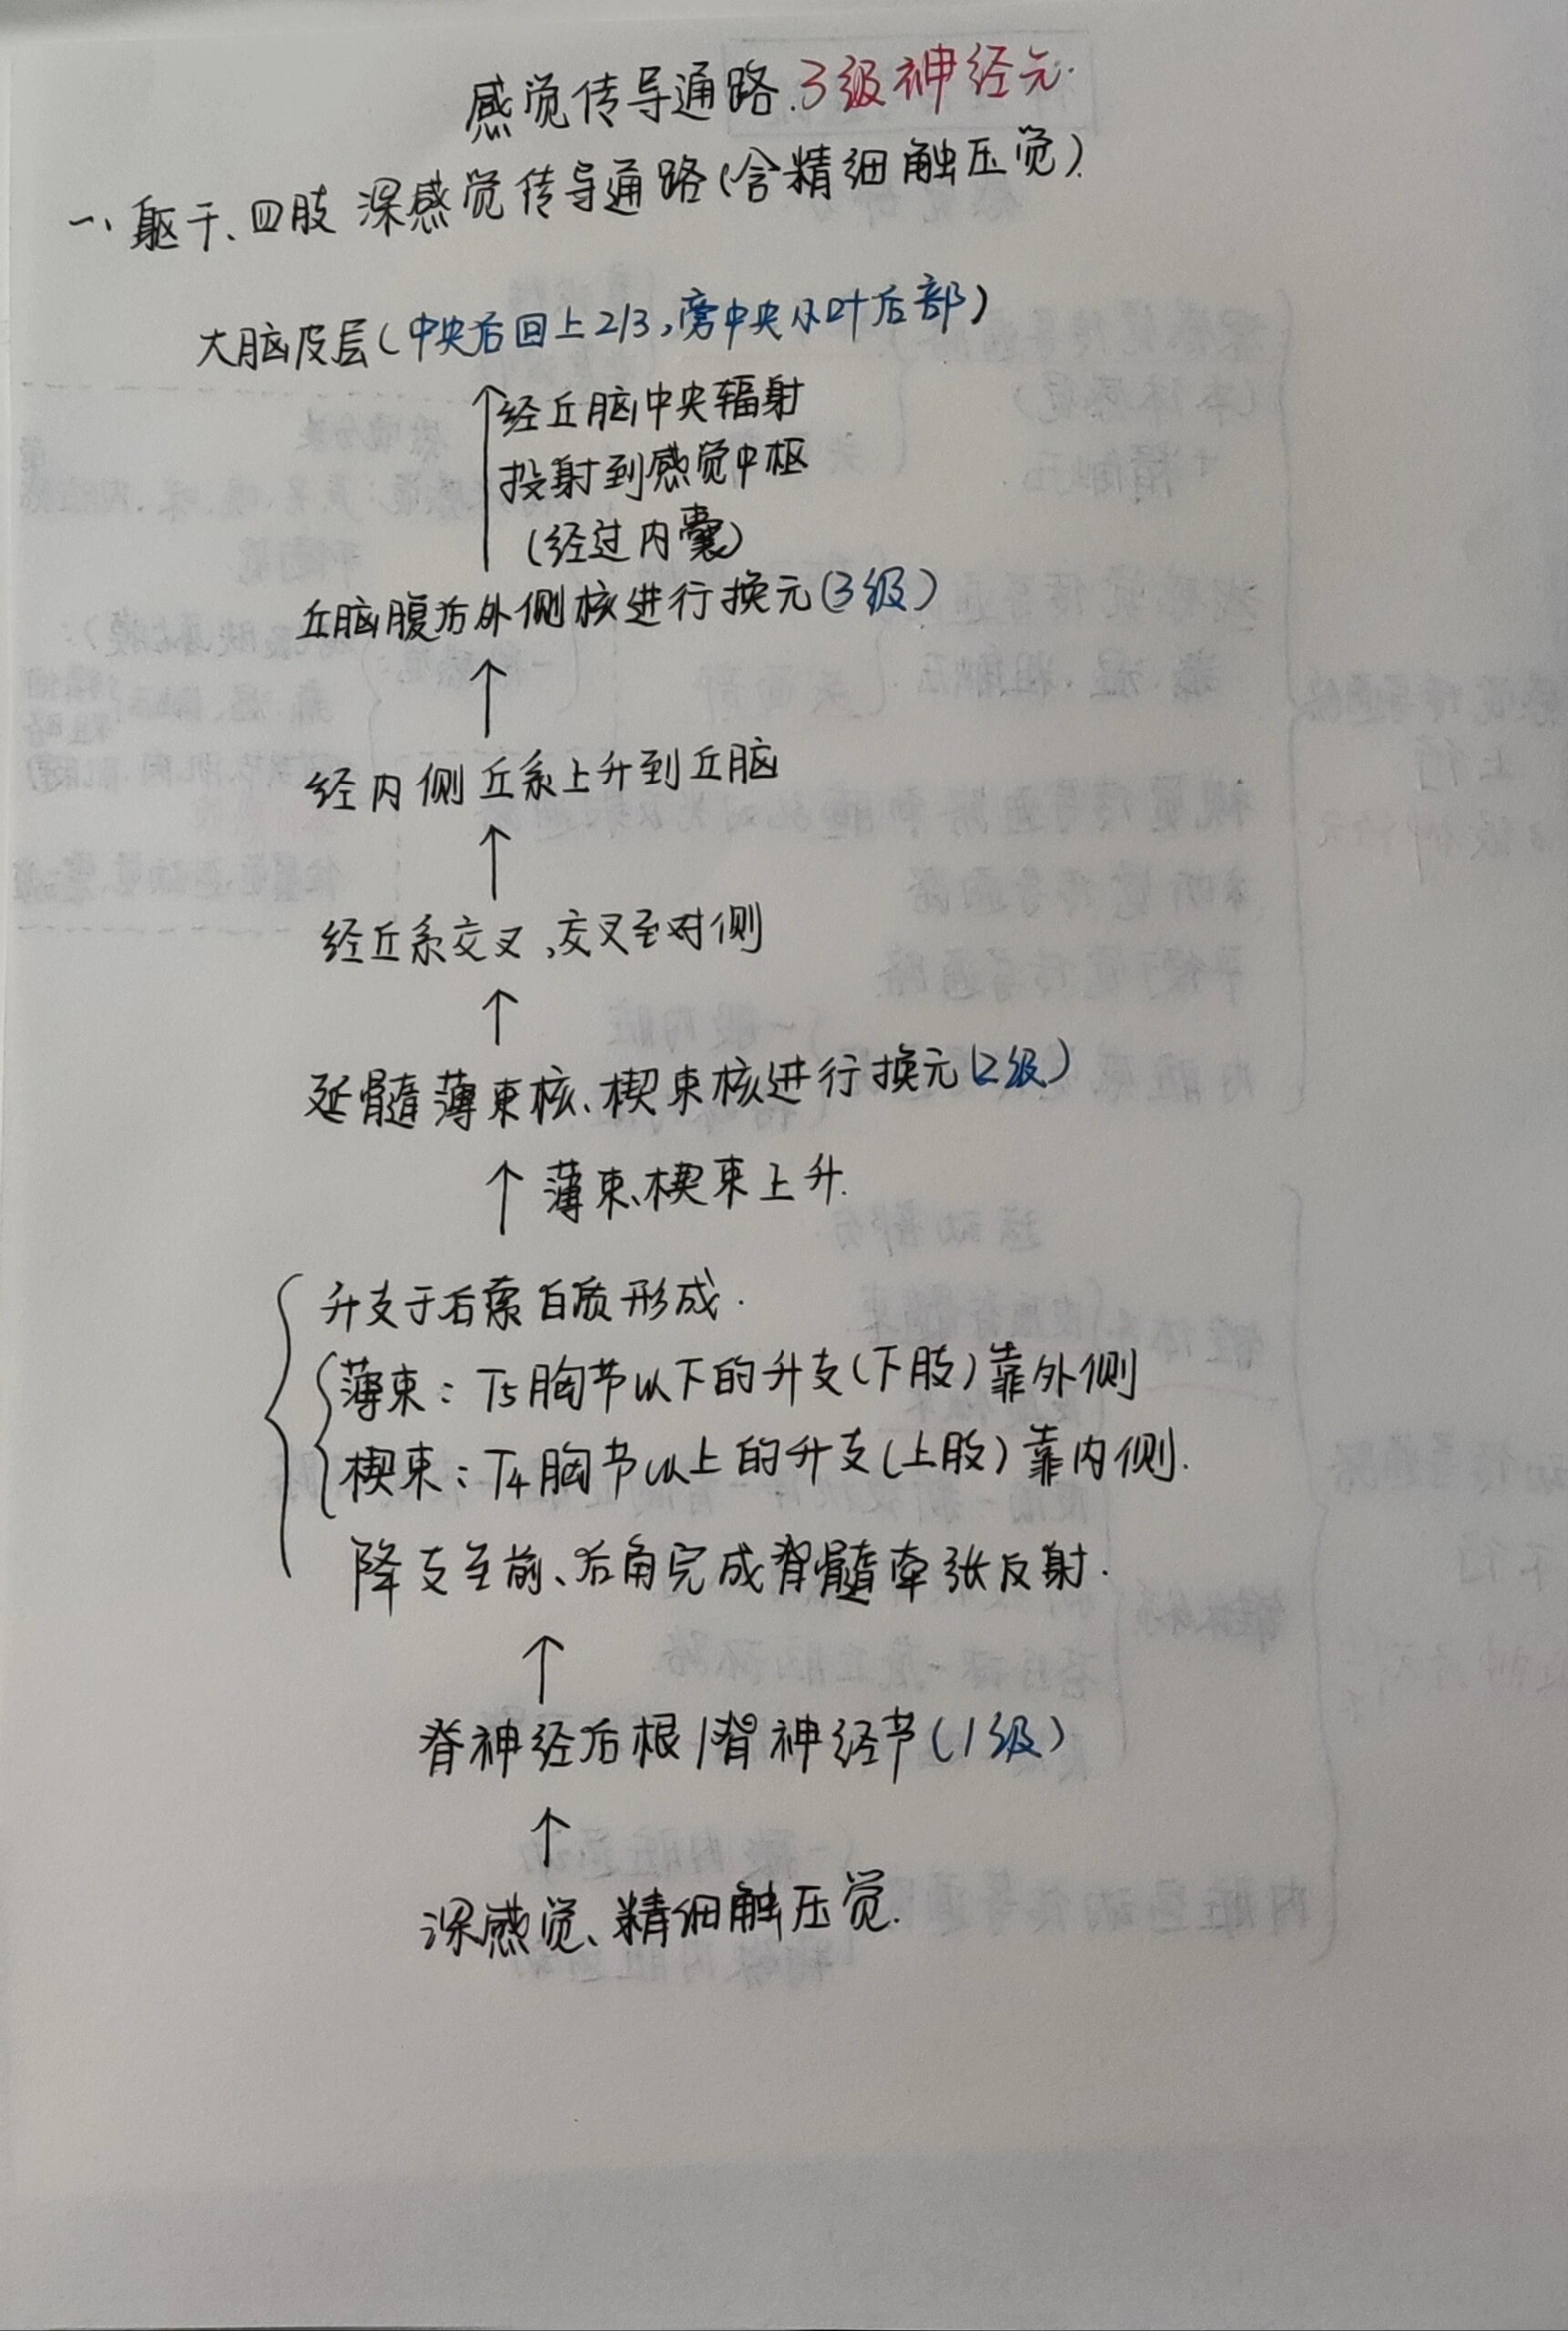 感觉传导通路.3级神经元.
一、躯干、四肢 深感觉传导通路(含精细触压觉).
大脑皮层(中央后回上2/3,旁中央小叶后部)
经丘脑中央辐射
投射到感觉中枢
(经过内囊)
丘脑腹后外侧核进行换元(3级)
经内侧丘系上升到丘脑
经丘系交叉,交叉至对侧
延髓薄束核、楔束核进行换元(2级)
薄束、楔束上升.
升支于后索白质形成.
薄束:T5胸节以下的升支(下肢)靠外侧
楔束:T4胸节以上的升支(上肢)靠内侧.
降支至前、后角完成脊髓牵张反射.
脊神经后根/脊神经节(1级)
深感觉、精细触压觉.